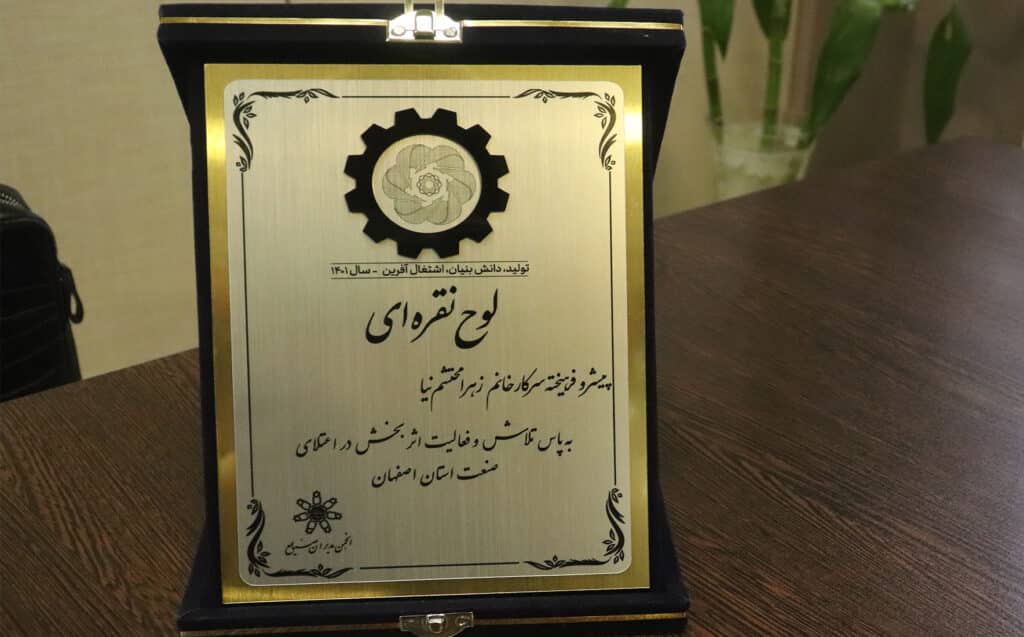 تولید، دانش بنیان، اشتغال آفرین - سال ۱۴۰۱
لوح نقره ای
پیشرو فرهیخته سرکار خانم زهرا محتشم نیا
به پاس تلاش و فعالیت اثر بخش در اعتلای
صنعت استان اصفهان
انجمن مدیران صنایع